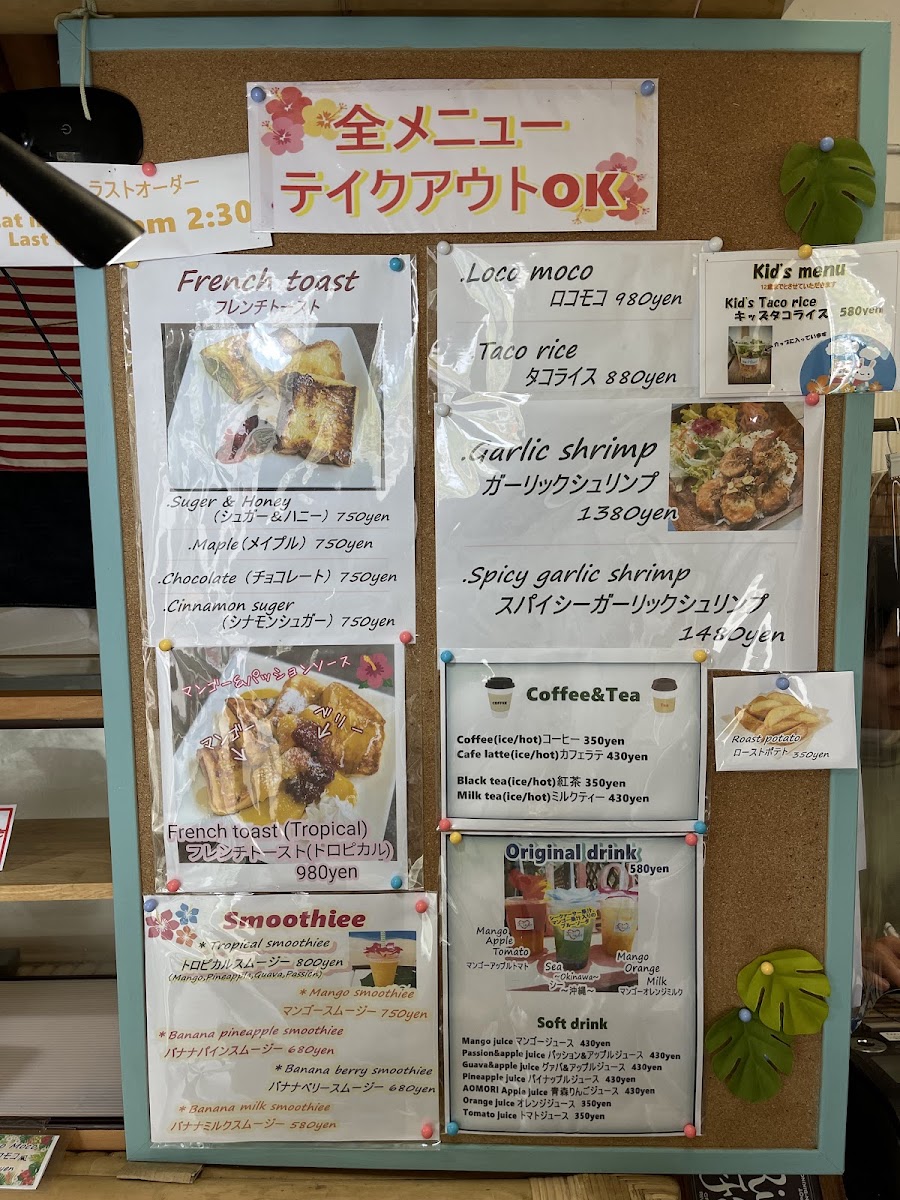 全メニュー
テイクアウトOK
ラストオーダー
pm 2:30
Last
French toast
フレンチトースト
.Suger & Honey
(シュガー&ハニー) 750yen
.Maple(メイプル) 750yen
.Chocolate (チョコレート) 750yen
.Cinnamon suger
(シナモンシュガー) 750yen
マンゴー&パッションソース
マンゴー
ベリー
French toast (Tropical)
フレンチトースト(トロピカル)
980yen
Smoothiee
*Tropical smoothiee
トロピカルスムージー 800yen
(Mango,Pineapple,Guava,Passion)
*Mango smoothiee
マンゴースムージー 750yen
*Banana pineapple smoothiee
バナナパインスムージー 680yen
*Banana berry smoothiee
バナナベリースムージー 680yen
*Banana milk smoothiee
バナナミルクスムージー 580yen
.Loco moco
ロコモコ 980yen
.Taco rice
タコライス 880yen
.Garlic shrimp
ガーリックシュリンプ
1380yen
.Spicy garlic shrimp
スパイシーガーリックシュリンプ
1480yen
Kid's menu
12歳までとさせていただきます
Kid's Taco rice
キッズタコライス 580yen
カップに入っています
Coffee&Tea
COFFEE
Tea
Coffee(ice/hot)コーヒー 350yen
Cafe latte(ice/hot)カフェラテ 430yen
Black tea(ice/hot)紅茶 350yen
Milk tea(ice/hot)ミルクティー 430yen
Roast potato
ローストポテト 350yen
Original drink
580yen
Mango
Apple
Tomato
マンゴーアップルトマト
Sea
~Okinawa~
シー~沖縄~
Mango
Orange
Milk
マンゴーオレンジミルク
Soft drink
Mango juice マンゴージュース 430yen
Passion&apple juice パッション&アップルジュース 430yen
Guava&apple juice グァバ&アップルジュース 430yen
Pineapple juice パイナップルジュース 430yen
AOMORI Apple juice 青森りんごジュース 430yen
Orange juice オレンジジュース 350yen
Tomato juice トマトジュース 350yen